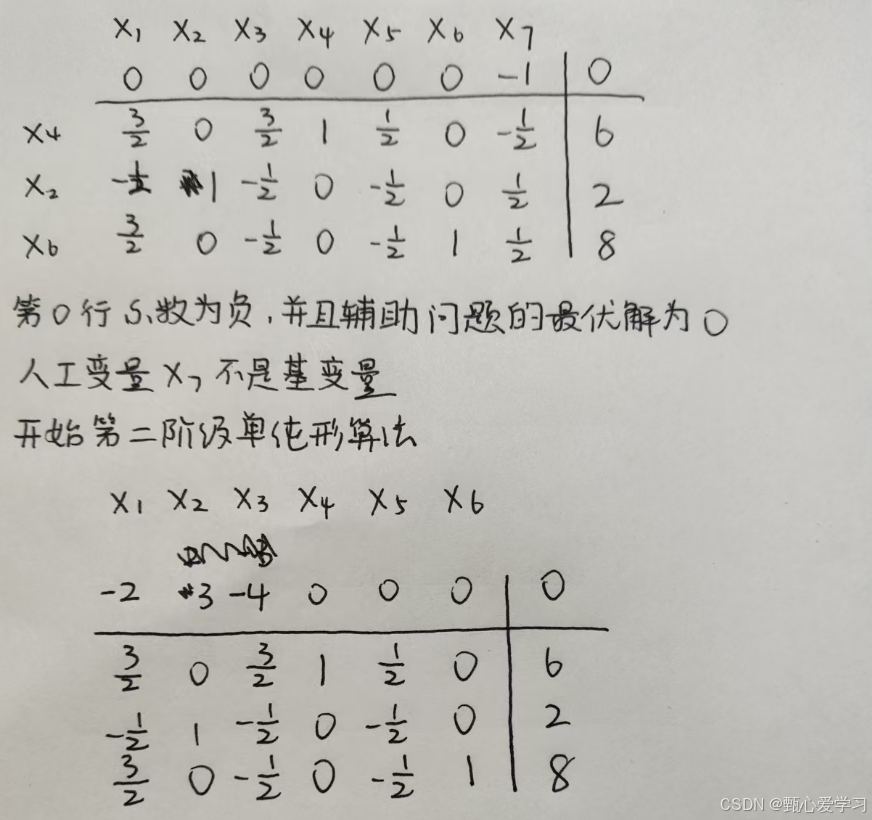 x₁ x₂ x₃ x₄ x₅ x₆ x₇
0 0 0 0 0 0 -1 | 0
x₄ 3/2 0 3/2 1 1/2 0 -1/2 | 6
x₂ -1/2 1 -1/2 0 -1/2 0 1/2 | 2
x₆ 3/2 0 -1/2 0 -1/2 1 1/2 | 8
第0行系数为负,并且辅助问题的最优解为0
人工变量x₇不是基变量
开始第二阶级单纯形算法
x₁ x₂ x₃ x₄ x₅ x₆
-2 3 -4 0 0 0 | 0
3/2 0 3/2 1 1/2 0 | 6
-1/2 1 -1/2 0 -1/2 0 | 2
3/2 0 -1/2 0 -1/2 1 | 8
CSDN @甄心爱学习